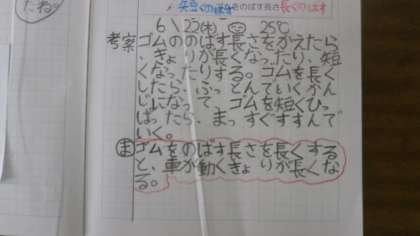 たね。
短くのばす のばす長さ 長くのばす
6\22(木) 25℃
考察 ゴムののばす長さをかえたら
、きょりが長くなったり、短
くなったりする。ゴムを長く
したら、ふっとんでいくかん
じになって、ゴムを短くひっ
ぱったら、まっすぐすすんで
いく。
ま ゴムをのばす長さを長くする
と、車が動くきょりが長くな
る。